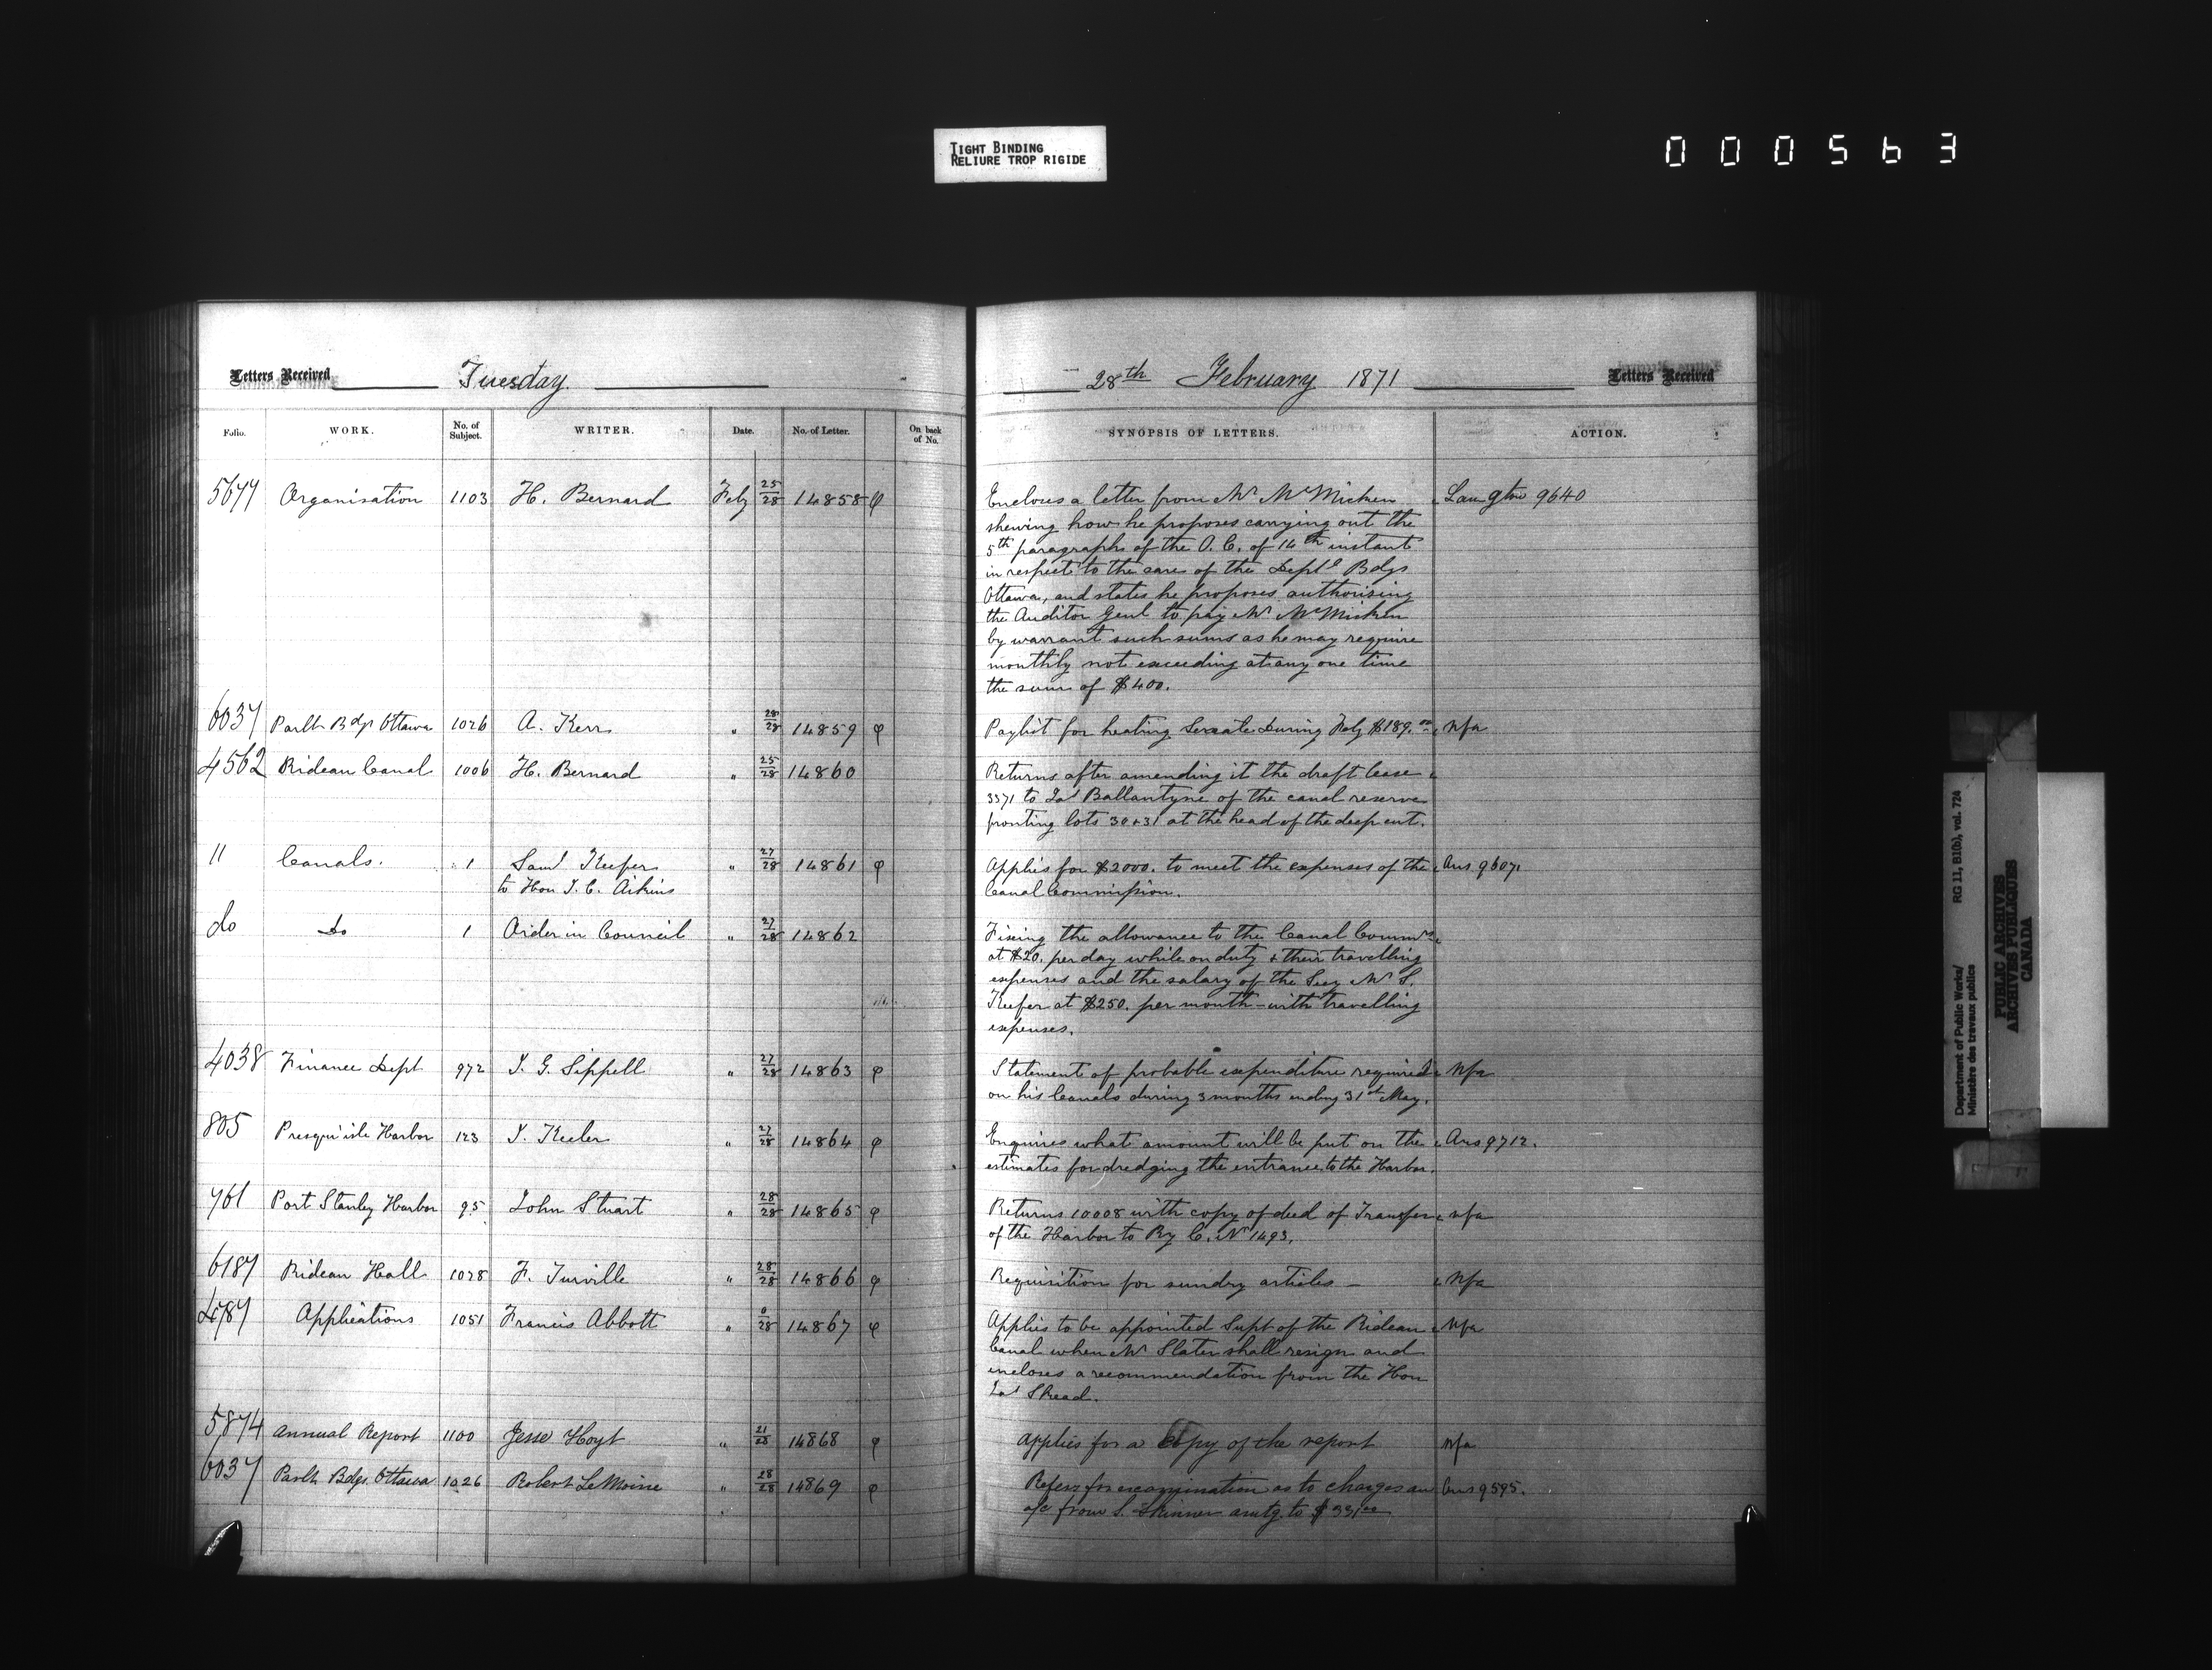 TIGHT BINDING
RELIURE TROP RIGIDE
000563
Letters Received
Tuesday
28th February 1871
Letters Received
Folio. WORK. No. of Subject. WRITER. Date. No. of Letter. On back of No. SYNOPSIS OF LETTERS. ACTION.
5677 Organisation 1103 H. Bernard Feby 25/28 14858 φ Encloses a letter from Mr McMicken Langton 9640
shewing how he proposes carrying out the
5th paragraph of the O.C. of 14th instant
in respect to the care of the Deptl Bdgs
Ottawa, and states he proposes authorising
the Auditor Genl to pay Mr McMicken
by warrant such sums as he may require
monthly not exceeding at any one time
the sum of $400.
6037 Parlt Bdgs Ottawa 1026 A. Kerr " 28/28 14859 φ Paylist for heating Senate during Feby $189.00 Nfa
4562 Rideau Canal 1006 H. Bernard " 25/28 14860 Returns after amending it the draft lease
3371 to Jas Ballantyne of the canal reserve
fronting lots 30 + 31 at the head of the deep cut.
11 Canals. 1 Saml Keefer " 27/28 14861 φ Applies for $2000. to meet the expenses of the Ans 9607.
to Hon J. C. Aikins Canal Commission.
do Do 1 Order in Council " 27/28 14862 Fixing the allowance to the Canal Commrs
at $20. per day while on duty + their travelling
expenses and the salary of the Secy Mr S.
Keefer at $250. per month with travelling
expenses.
4038 Finance Dept 972 J. G. Sippell " 27/28 14863 φ Statement of probable expenditure required Nfa
on his Canals during 3 months ending 31st May.
805 Presqu'isle Harbor 123 J. Keeler " 27/28 14864 φ Enquires what amount will be put on the Ans 9712.
estimates for dredging the entrance to the Harbor.
761 Port Stanley Harbor 95 John Stuart " 28/28 14865 φ Returns 10008 with copy of deed of Transfer Nfa
of the Harbor to Ry C. No 1493.
6187 Rideau Hall 1028 F. Turville " 28/28 14866 φ Requisition for sundry articles — Nfa
Applications 1051 Francis Abbott " 0/28 14867 φ Applies to be appointed Supt of the Rideau Nfa
Canal when Mr Slater shall resign and
encloses a recommendation from the Hon
Jas Skead.
5874 Annual Report 1100 Jesse Hoyt " 21/28 14868 φ Applies for a Copy of the report Nfa
6037 Parlt Bdgs. Ottawa 1026 Robert LeMoine " 28/28 14869 φ Refers for examination as to charges an Ans 9595.
a/c from S. Skinner amtg. to $33.00
Department of Public Works/ RG 11, B1(b), vol. 724
Ministère des travaux publics
PUBLIC ARCHIVES
ARCHIVES PUBLIQUES
CANADA